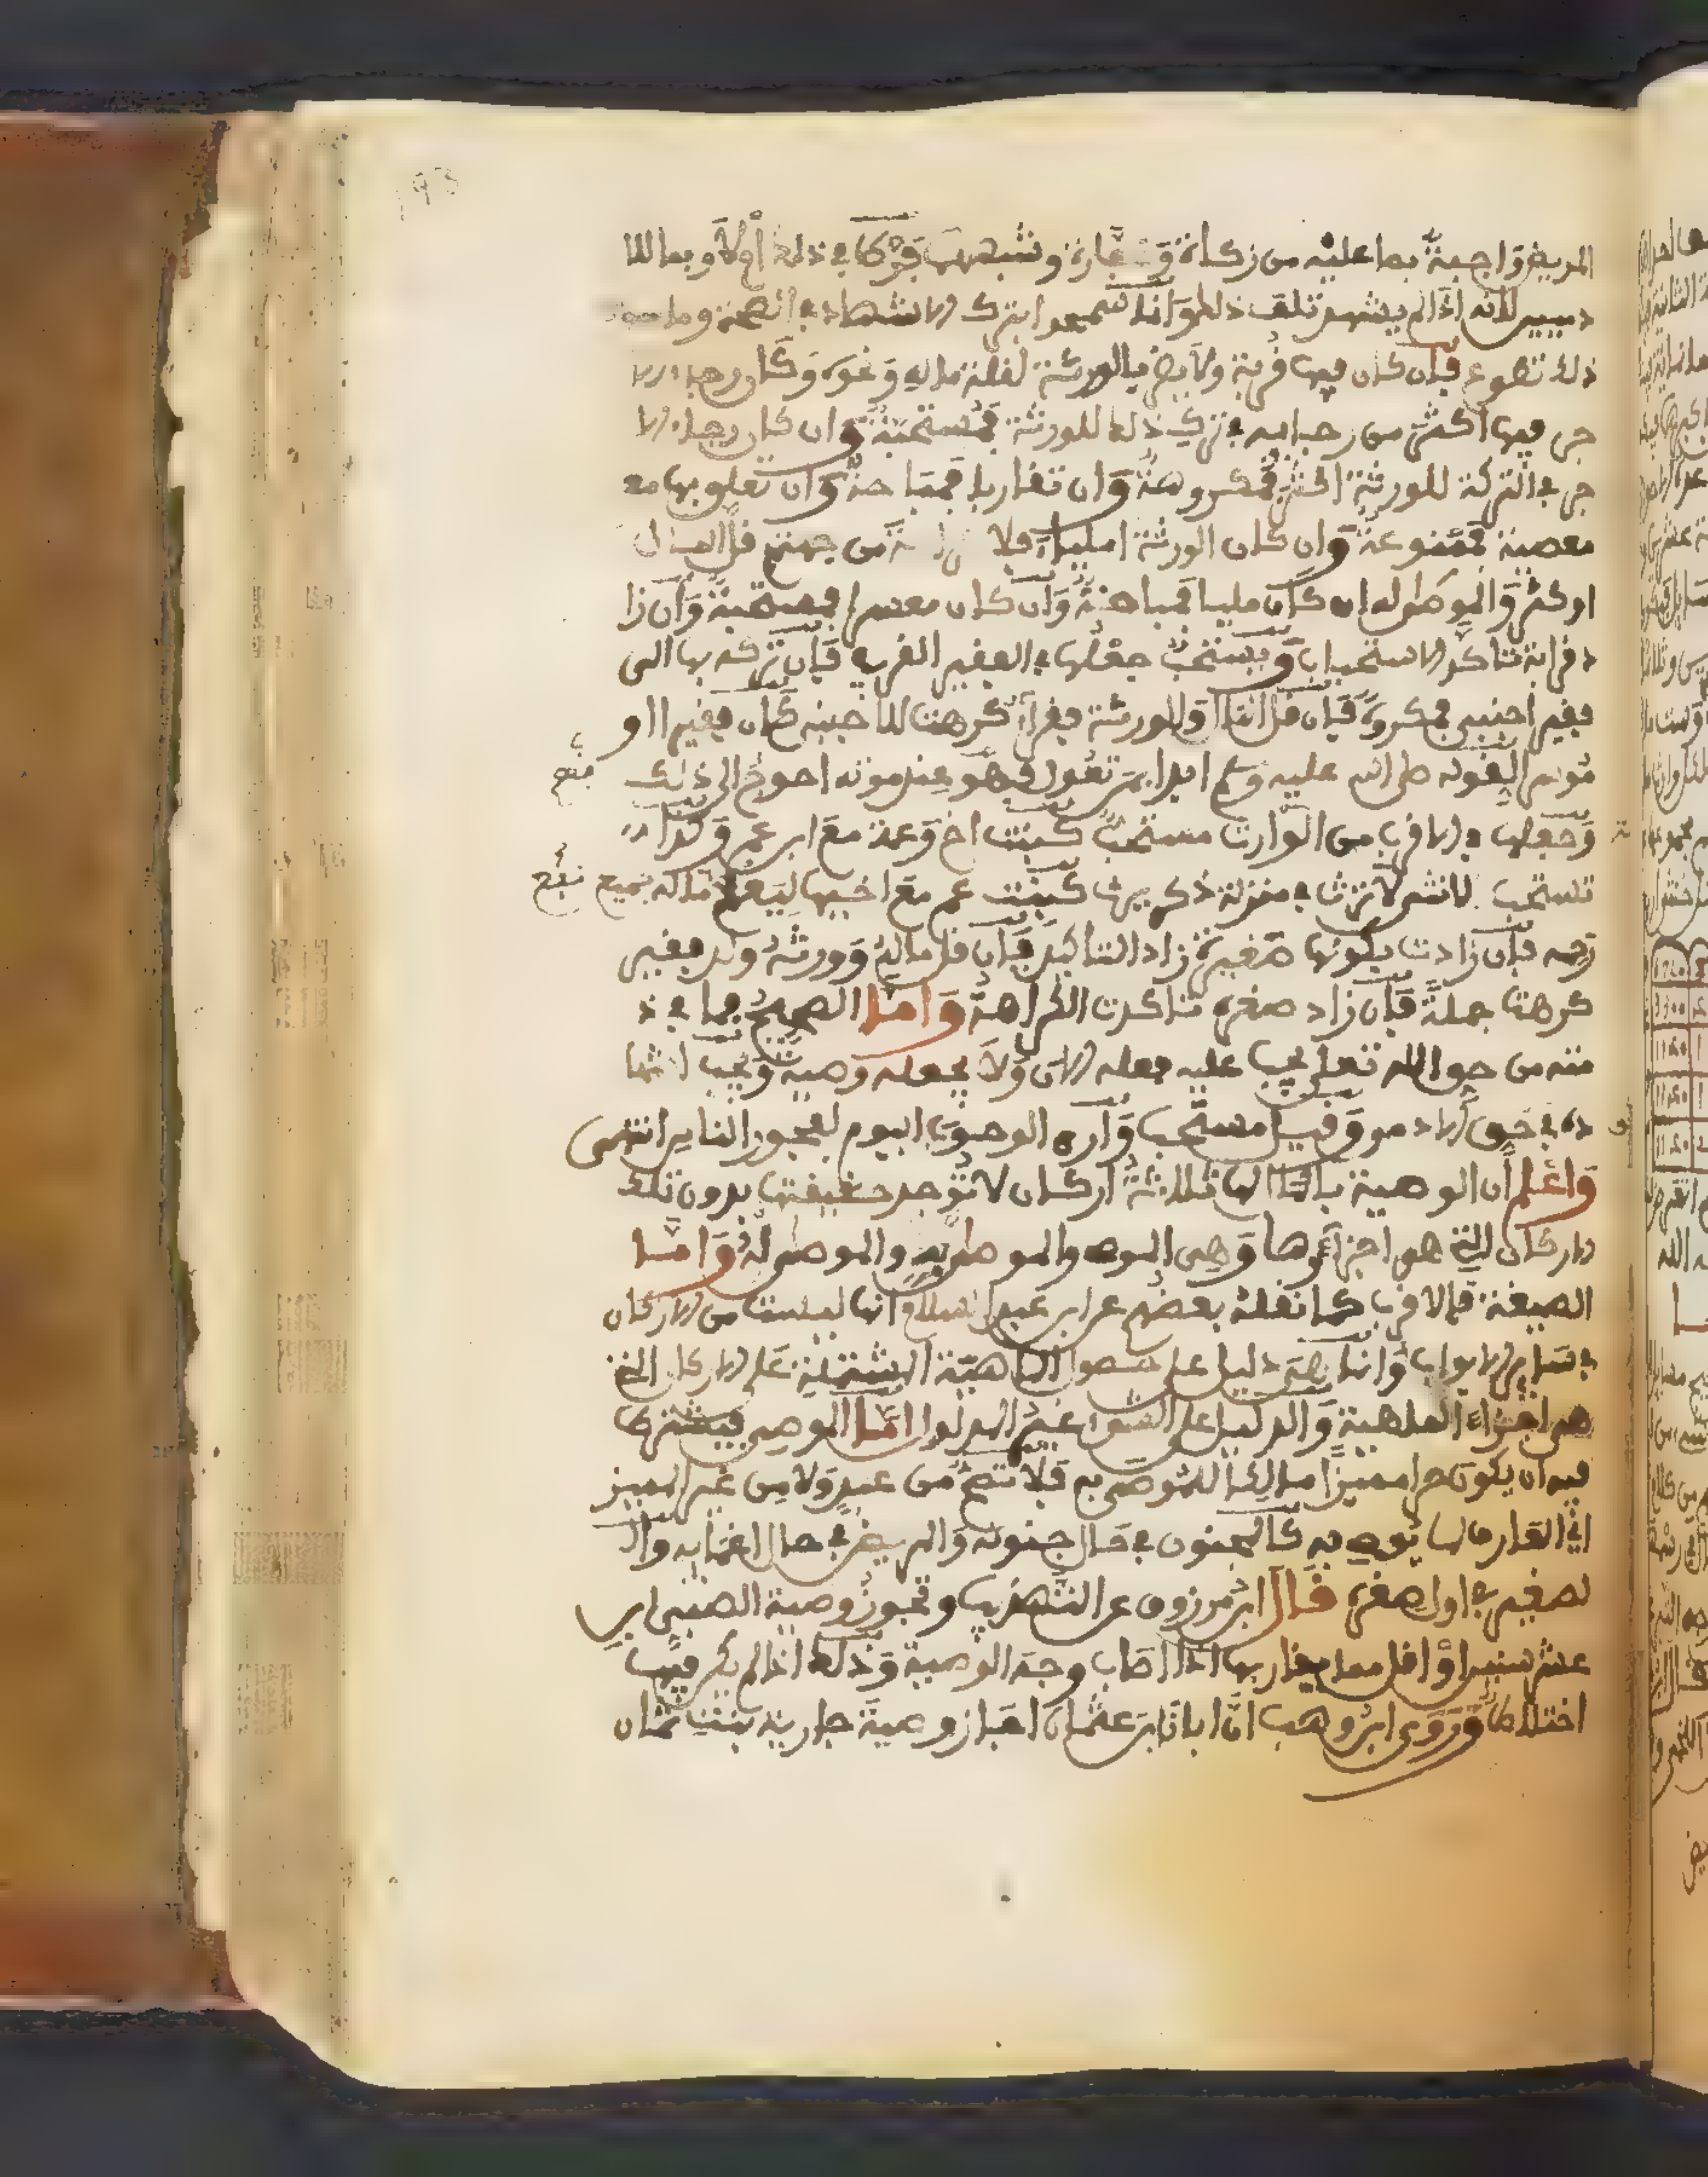 المريض واجبة بما عليه من زكاة وكفارة وشبههما فرط في ذلك أولا وبما للا
دميين لانه اذا لم يشهد تلف ذلك وانما سمعوا بترك الاشهاد في الصحة وما سوى
ذلك تطوع فإن كان فيها قربة ولا يضر بالورثة لقلة ماله ونحوه وكان رجاء الا
جر فيها اكثر من رجائه في ترك ذلك للورثة فمستحبة وان كان رجاء الا
جر في التركة للورثة اكثر فمكروهة وان تقاربا فمباحة وان تعلق بها مع
معصية فممنوعة وان كان الورثة امليا فلا من جهتهم قل المال
او كثر والموصى له ان كان مليا فمباحة وان كان معسرا فمستحبة وان زا
د قرابة تاكد الاستحباب ويستحب جعلها في الفقير القريب فإن تركه بها الى
فقير اجنبي فمكروه فإن قل المال والورثة فقرآء كرهت للاجنبي كان فقيرا او
موسرا لقوله صلى الله عليه وسلم ابدا بمن تعول فهو عند موته احوج الى ذلك
وجعلها في الاقرب من الوارث مستحب كبنت اخ وعمة مع ابن عم وكذا
تستحب لانثى لا ترث في منزلة ذكر يرث كبنت عم مع اخيها ليعم ماله جميع
رحمه فإن زادت بكونها صغيرة زاد التاكيد فإن قل ماله وورثه ولد فقير
كرهت جملة فإن زاد صغره تاكدت الكراهة وأما الصحيح فما في ذ
مته من حق الله تعلى يجب عليه فعله الان ولا يجعله وصية ويجب اشها
ده في حق الادمي وقيل مستحب وأرى الوجوب اليوم لفجور الناس انتهى
واعلم أن الوصية بالمال لها ثلاثة اركان لا توجد حقيقتها بدون تلك
الاركان التي هو اجزآؤها وهي الموصي والموصى به والموصى له وأما
الصيغة فالاقرب كما نقله بعضهم عن ابن عبد السلام انها ليست من الاركان
في سائر الابواب وانما هي دليل على حصول الماهية المشتملة على الاركان التي
هي اجزاء الماهية والدليل على الشيء غير المدلول أما الموصي فيشترط
فيه ان يكون حرا مميزا مالكا للموصى به فلا تصح من عبد ولا من غير المميز
اي العارف لما يوصي به كالمجنون في حال جنونه والمريض في حال اغمائه وال
لصغير في اول صغره قال ابن مرزوق عن التهذيب وتجوز وصية الصبي ابن
عشر سنين او اقل مما يقاربها اذا اصاب وجه الوصية وذلك اذا لم يكن فيها
اختلاط وروى ابن وهب ان ابان بن عثمان اجاز وصية جارية بنت ثمان